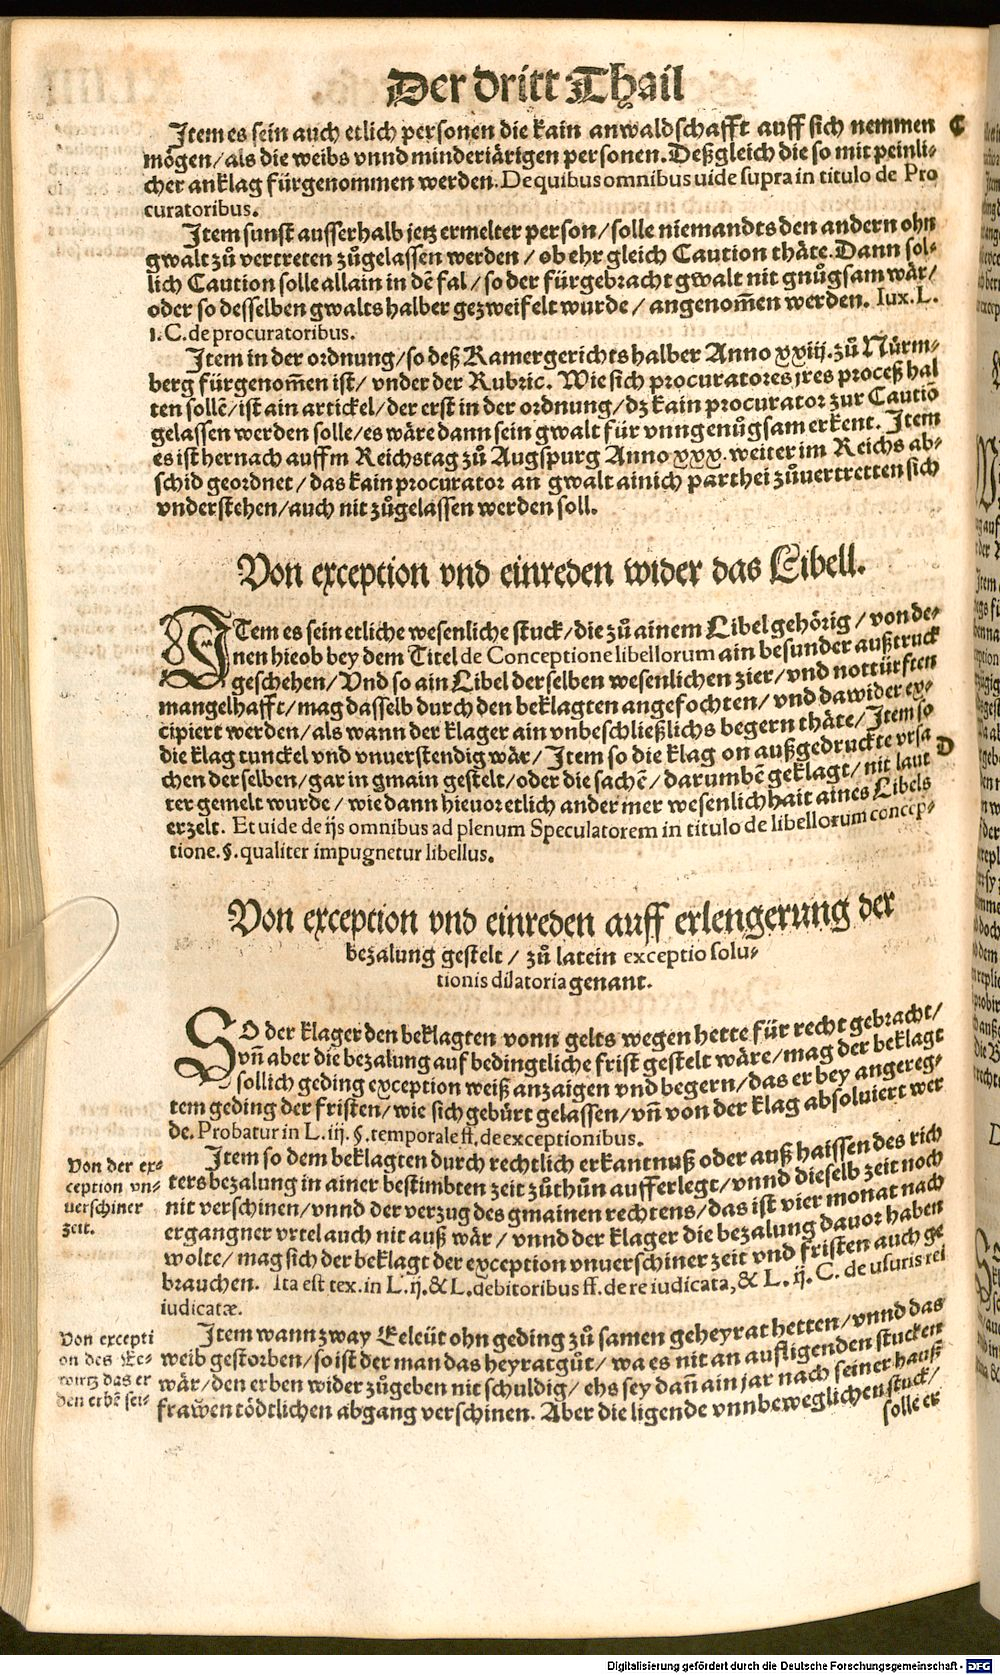 Der dritt Thail
Item es sein auch etlich personen die kain anwaldschafft auff sich nemmen C
mögen/ als die weibs vnnd minderiärigen personen. Deßgleich die so mit peinli-
cher anklag fürgenommen werden. De quibus omnibus uide supra in titulo de Pro
curatoribus.
Item sunst ausserhalb jetz ermelter person/ solle niemandts den andern ohn
gwalt zů vertreten zůgelassen werden / ob ehr gleich Caution thäte. Dann sol-
lich Caution solle allain in dē fal / so der fürgebracht gwalt nit gnůgsam wär/
oder so desselben gwalts halber gezweifelt wurde / angenom̄en werden. Iux. L.
1. C. de procuratoribus.
Item in der ordnung/ so deß Kamergerichts halber Anno xxiij. zů Nürm-
berg fürgenom̄en ist/ vnder der Rubric. Wie sich procuratores jres proceß hal
ten sollē/ ist ain artickel/ der erst in der ordnung/ dz kain procurator zur Cautiō
gelassen werden solle/ es wäre dann sein gwalt für vnngenůgsam erkent. Item
es ist hernach auffm Reichstag zů Augspurg Anno xxx. weiter im Reichs ab-
schid geordnet / das kain procurator an gwalt ainich parthei zůuertretten sich
vnderstehen/ auch nit zůgelassen werden soll.
Von exception vnd einreden wider das Libell.
ITem es sein etliche wesenliche stuck/ die zů ainem Libel gehörig / von de-
nen hieob bey dem Titel de Conceptione libellorum ain besunder außtruck
geschehen/ Vnd so ain Libel derselben wesenlichen zier/ vnd nottürften
mangelhafft/ mag dasselb durch den beklagten angefochten/ vnd dawider ex-
cipiert werden/ als wann der klager ain vnbeschließlichs begern thäte/ Item so
die klag tunckel vnd vnuerstendig wär/ Item so die klag on außgedruckte vrsa D
chen derselben/ gar in gmain gestelt/ oder die sachē/ darumbē geklagt/ nit laut
ter gemelt wurde / wie dann hieuor etlich ander mer wesenlichhait aines Libels
erzelt. Et uide de ijs omnibus ad plenum Speculatorem in titulo de libellorum concep-
tione. §. qualiter impugnetur libellus.
Von exception vnd einreden auff erlengerung der
bezalung gestelt / zů latein exceptio solu-
tionis dilatoria genant.
SO der klager den beklagten vonn gelts wegen hette für recht gebracht/
vn̄ aber die bezalung auf bedingtliche frist gestelt wäre/ mag der beklagt
sollich geding exception weiß anzaigen vnd begern/ das er bey angereg-
tem geding der fristen/ wie sich gebürt gelassen/ vn̄ von der klag absoluiert wer
de. Probatur in L. iij. §. temporale ff. de exceptionibus.
Von der ex-
ception vn-
uerschiner
zeit.
Item so dem beklagten durch rechtlich erkantnuß oder auß haissen des rich
ters bezalung in ainer bestimbten zeit zůthůn aufferlegt/ vnnd dieselb zeit noch
nit verschinen/ vnnd der verzug des gmainen rechtens/ das ist vier monat nach
ergangner vrtel auch nit auß wär / vnnd der klager die bezalung dauor haben
wolte/ mag sich der beklagt der exception vnuerschiner zeit vnd fristen auch ge
brauchen. Ita est tex. in L. ij. & L. debitoribus ff. de re iudicata, & L. ij. C. de usuris rei
iudicatæ.
Von excepti
on des Ee-
wirtz das er
den erbē sei-
Item wann zway Eeleüt ohn geding zů samen geheyrat hetten/ vnnd das
weib gestorben/ so ist der man das heyratgůt/ wa es nit an aufligenden stucken
wär/ den erben wider zůgeben nit schuldig/ ehs sey dan̄ ain jar nach seiner hauß
frawen tödtlichen abgang verschinen. Aber die ligende vnnbeweglichen stuck/
solle es
Digitalisierung gefördert durch die Deutsche Forschungsgemeinschaft - DFG